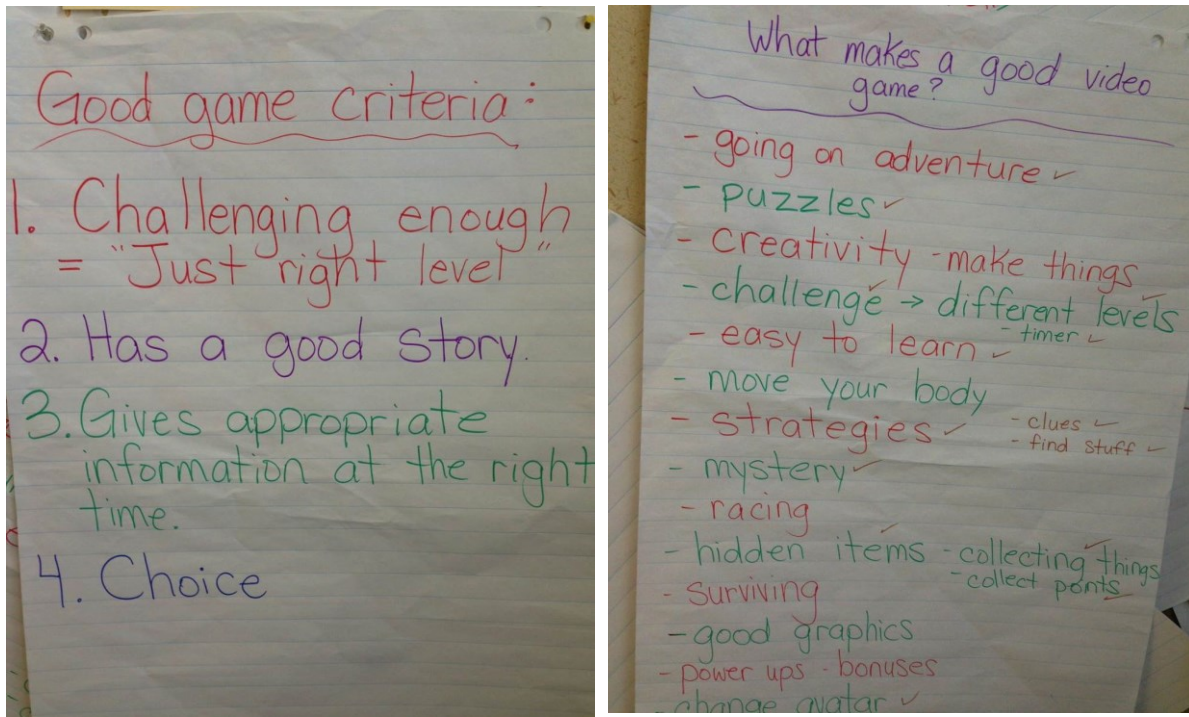 Good game criteria:
1. Challenging enough
= "Just right level"
2. Has a good story.
3. Gives appropriate
information at the right
time.
4. Choice
What makes a good video
game?
- going on adventure ✓
- puzzles ✓
- creativity - make things ✓
- challenge ✓ → different levels
- timer ✓
- easy to learn ✓
- move your body
- strategies ✓
- clues ✓
- find stuff ✓
- mystery ✓
- racing
- hidden items ✓ - collecting things ✓
- collect points ✓
- surviving
- good graphics
- power ups - bonuses
- change avatar ✓